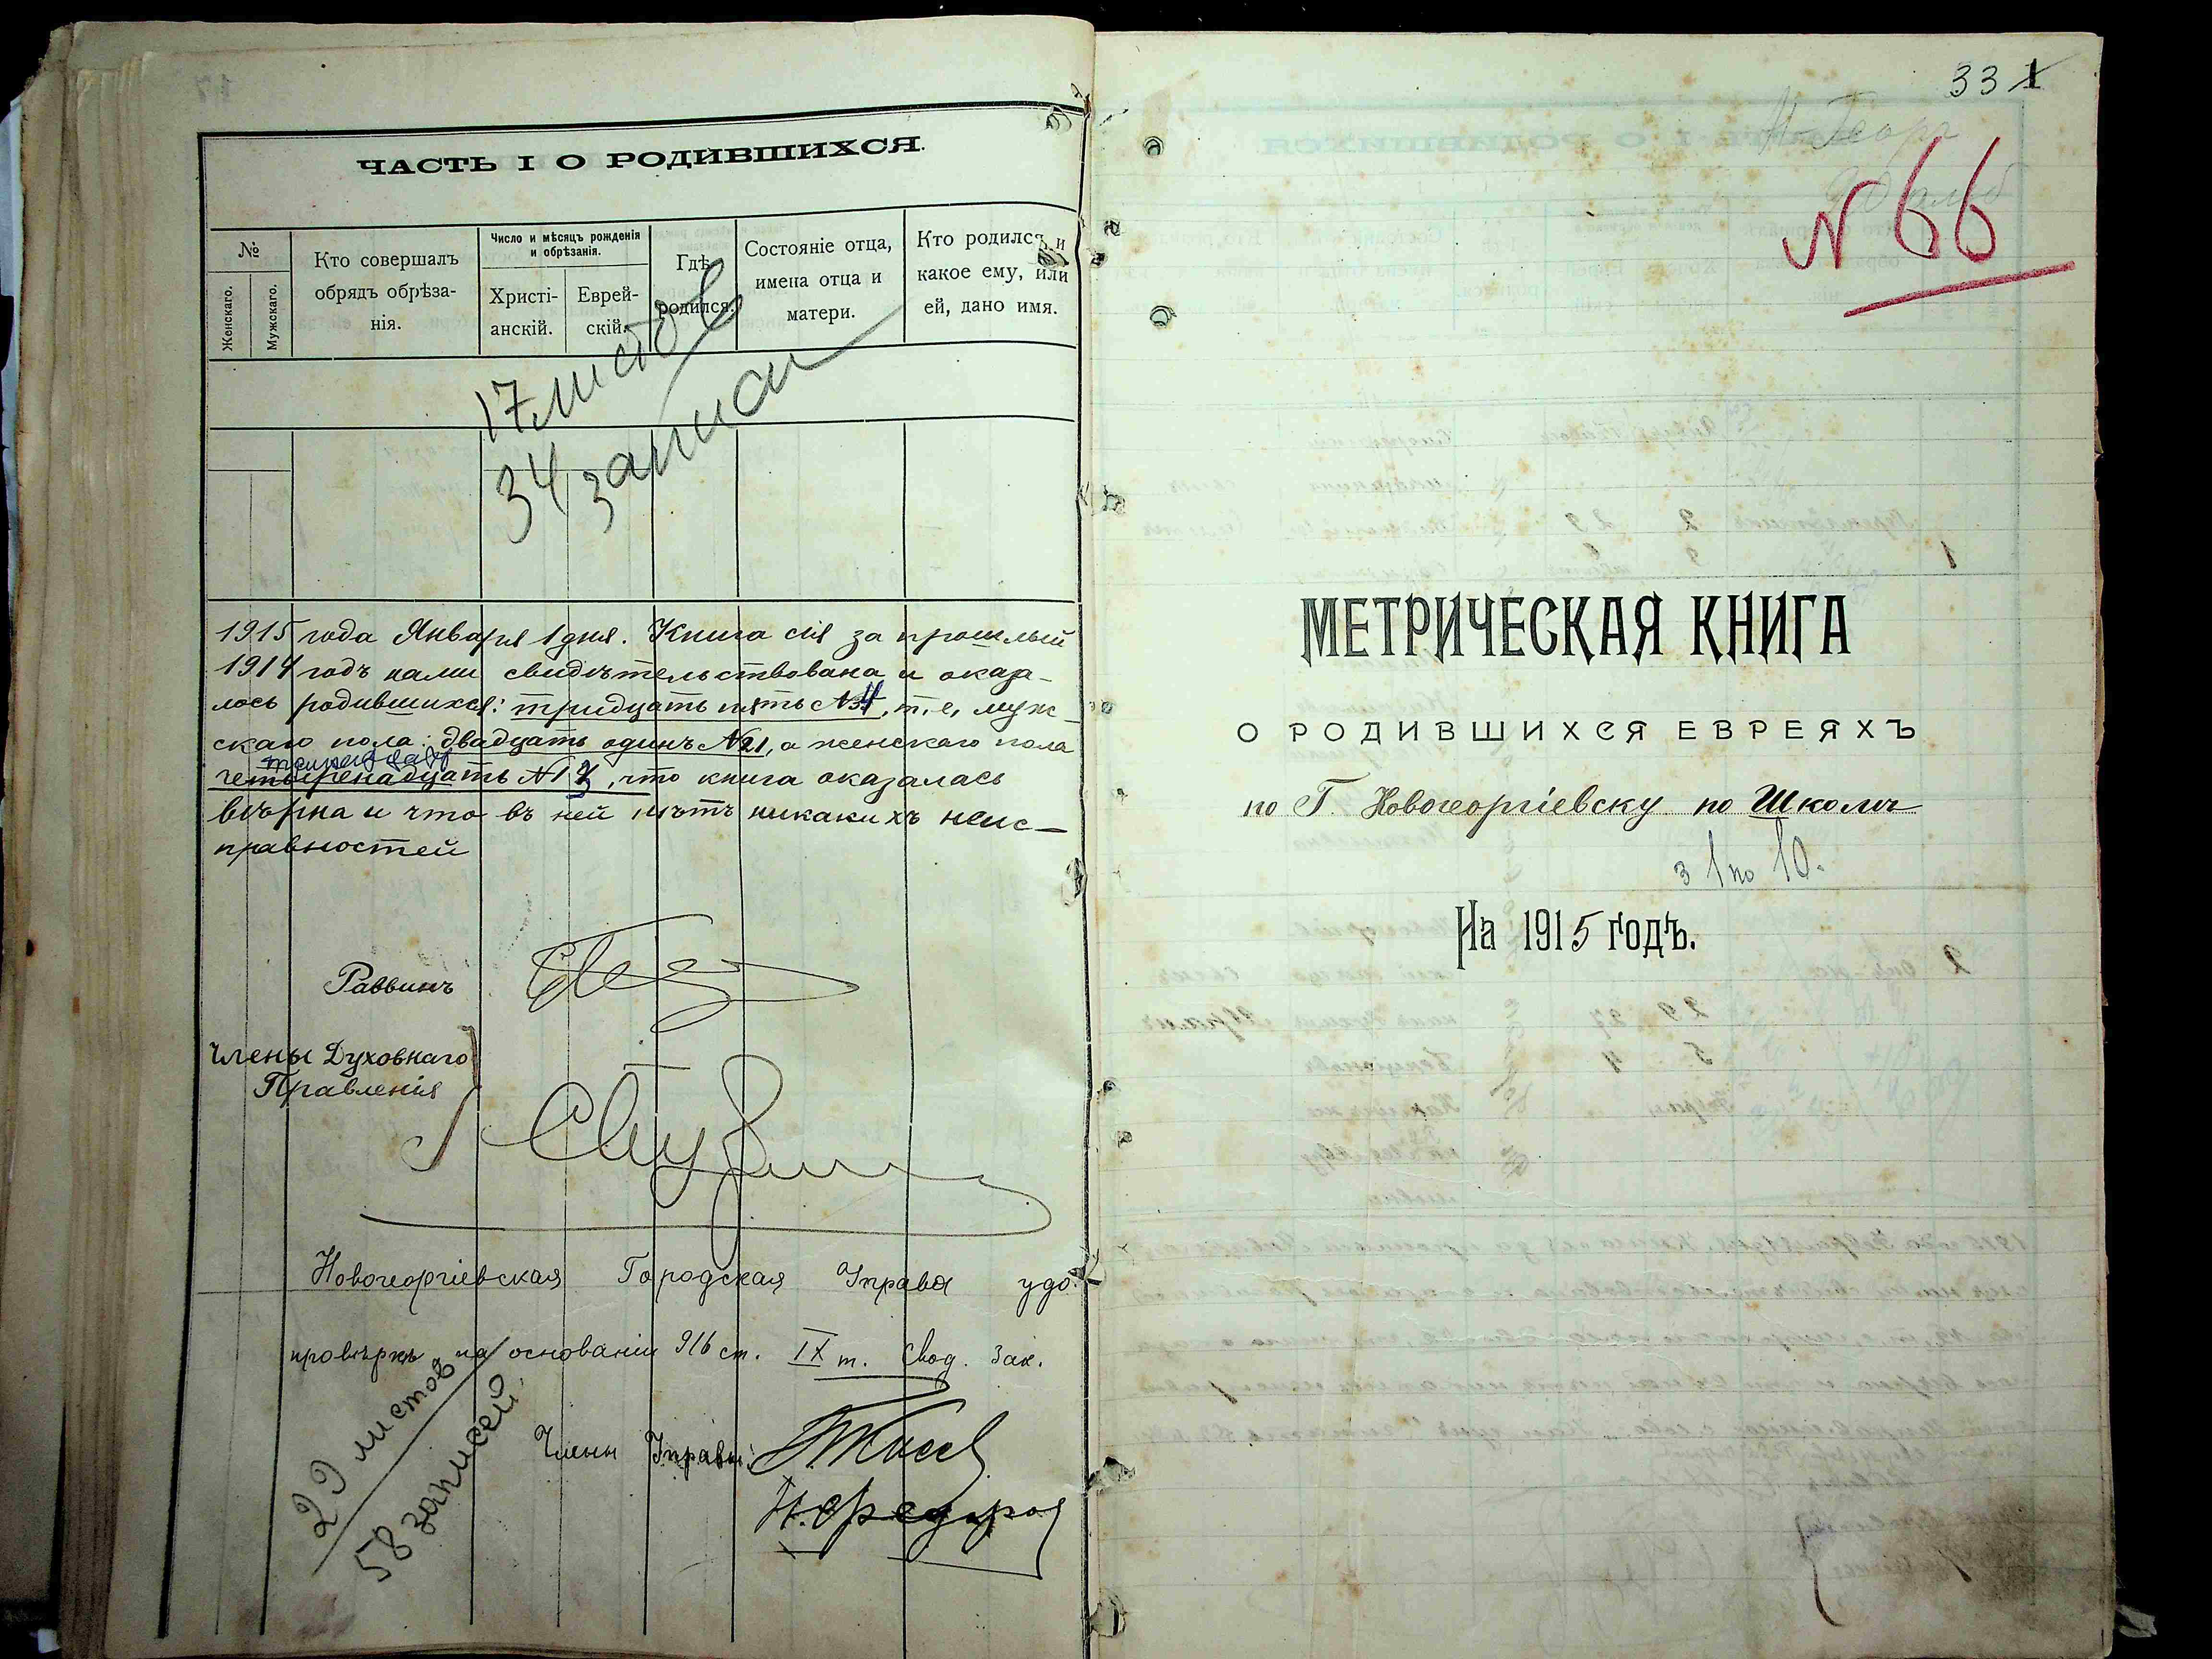 ЧАСТЬ I О РОДИВШИХСЯ.
№
Женскаго.
Мужскаго.
Кто совершалъ
обрядъ обрѣза-
нія.
Число и мѣсяцъ рожденія
и обрѣзанія.
Христі-
анскій.
Еврей-
скій.
Гдѣ
родился.
Состояніе отца,
имена отца и
матери.
Кто родился, и
какое ему, или
ей, дано имя.
17 листов
34 записи
1915 года Января 1 дня. Книга сія за прошлый
1914 годъ нами свидѣтельствована и оказа-
лось родившихся: тридцать пять №34, т. е, муж-
скаго пола: двадцать одинъ №21, а женскаго пола
тринадцать
четыренадцать №13, что книга оказалась
вѣрна и что въ ней нѣтъ никакихъ неис-
правностей
Раввинъ
Члены Духовнаго
Правленія
Новогеоргіевская Городская Управа удо.
провѣркѣ на основаніи 916 ст. IX т. Свод. Зак.
Члены Управы:
29 листов
58 записей
33
№ 66
МЕТРИЧЕСКАЯ КНИГА
О РОДИВШИХСЯ ЕВРЕЯХЪ
по Г. Новогеоргіевску по Школѣ
з 1 по 10.
На 1915 годъ.